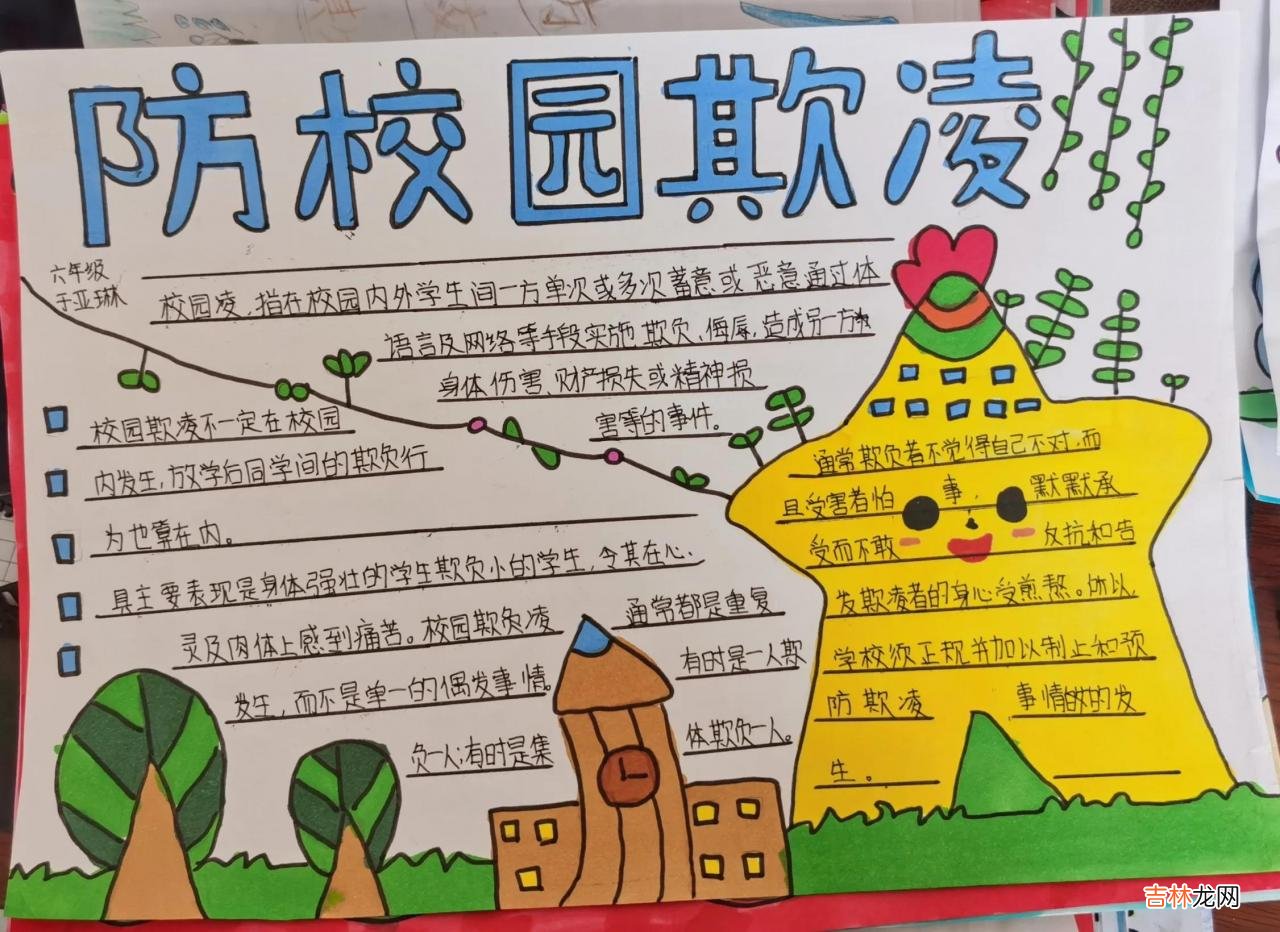 防校园欺凌
六年级
于亚琳
校园凌,指在校园内外学生间一方单次或多次蓄意或恶意通过体
语言及网络等手段实施欺负、侮辱,造成另一方
身体伤害、财产损失或精神损
害等的事件。
校园欺凌不一定在校园
内发生,放学后同学间的欺负行
为也算在内。
具主要表现是身体强壮的学生欺负小的学生,令其在心
灵及肉体上感到痛苦。校园欺负凌
通常都是重复
发生,而不是单一的偶发事情。
有时是一人欺
负一人;有时是集
体欺负一人。
通常欺负者不觉得自己不对,而
且受害者怕事,默默承
受而不敢反抗和告
发欺凌者的身心受煎熬。所以
学校须正规并加以制止和预
防欺凌事情的发
生。
吉林龙网